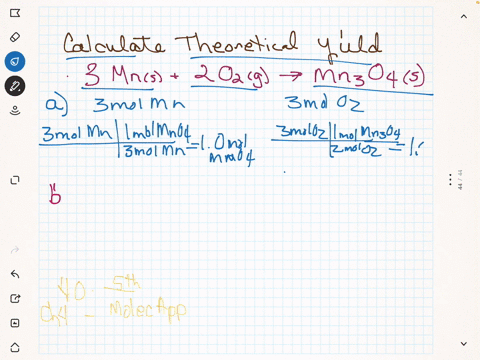 Calculate Theoretical yield
3 Mn(s) + 2O2(g) → Mn3O4(s)
a) 3mol Mn 3mol O2
3mol Mn | 1mol MnO4 3molO2 | 1mol Mn3O4
3mol Mn = 1.0mol MnO4 2molO2 = 1.
b
40. 5th
Ch4 - MolecApp